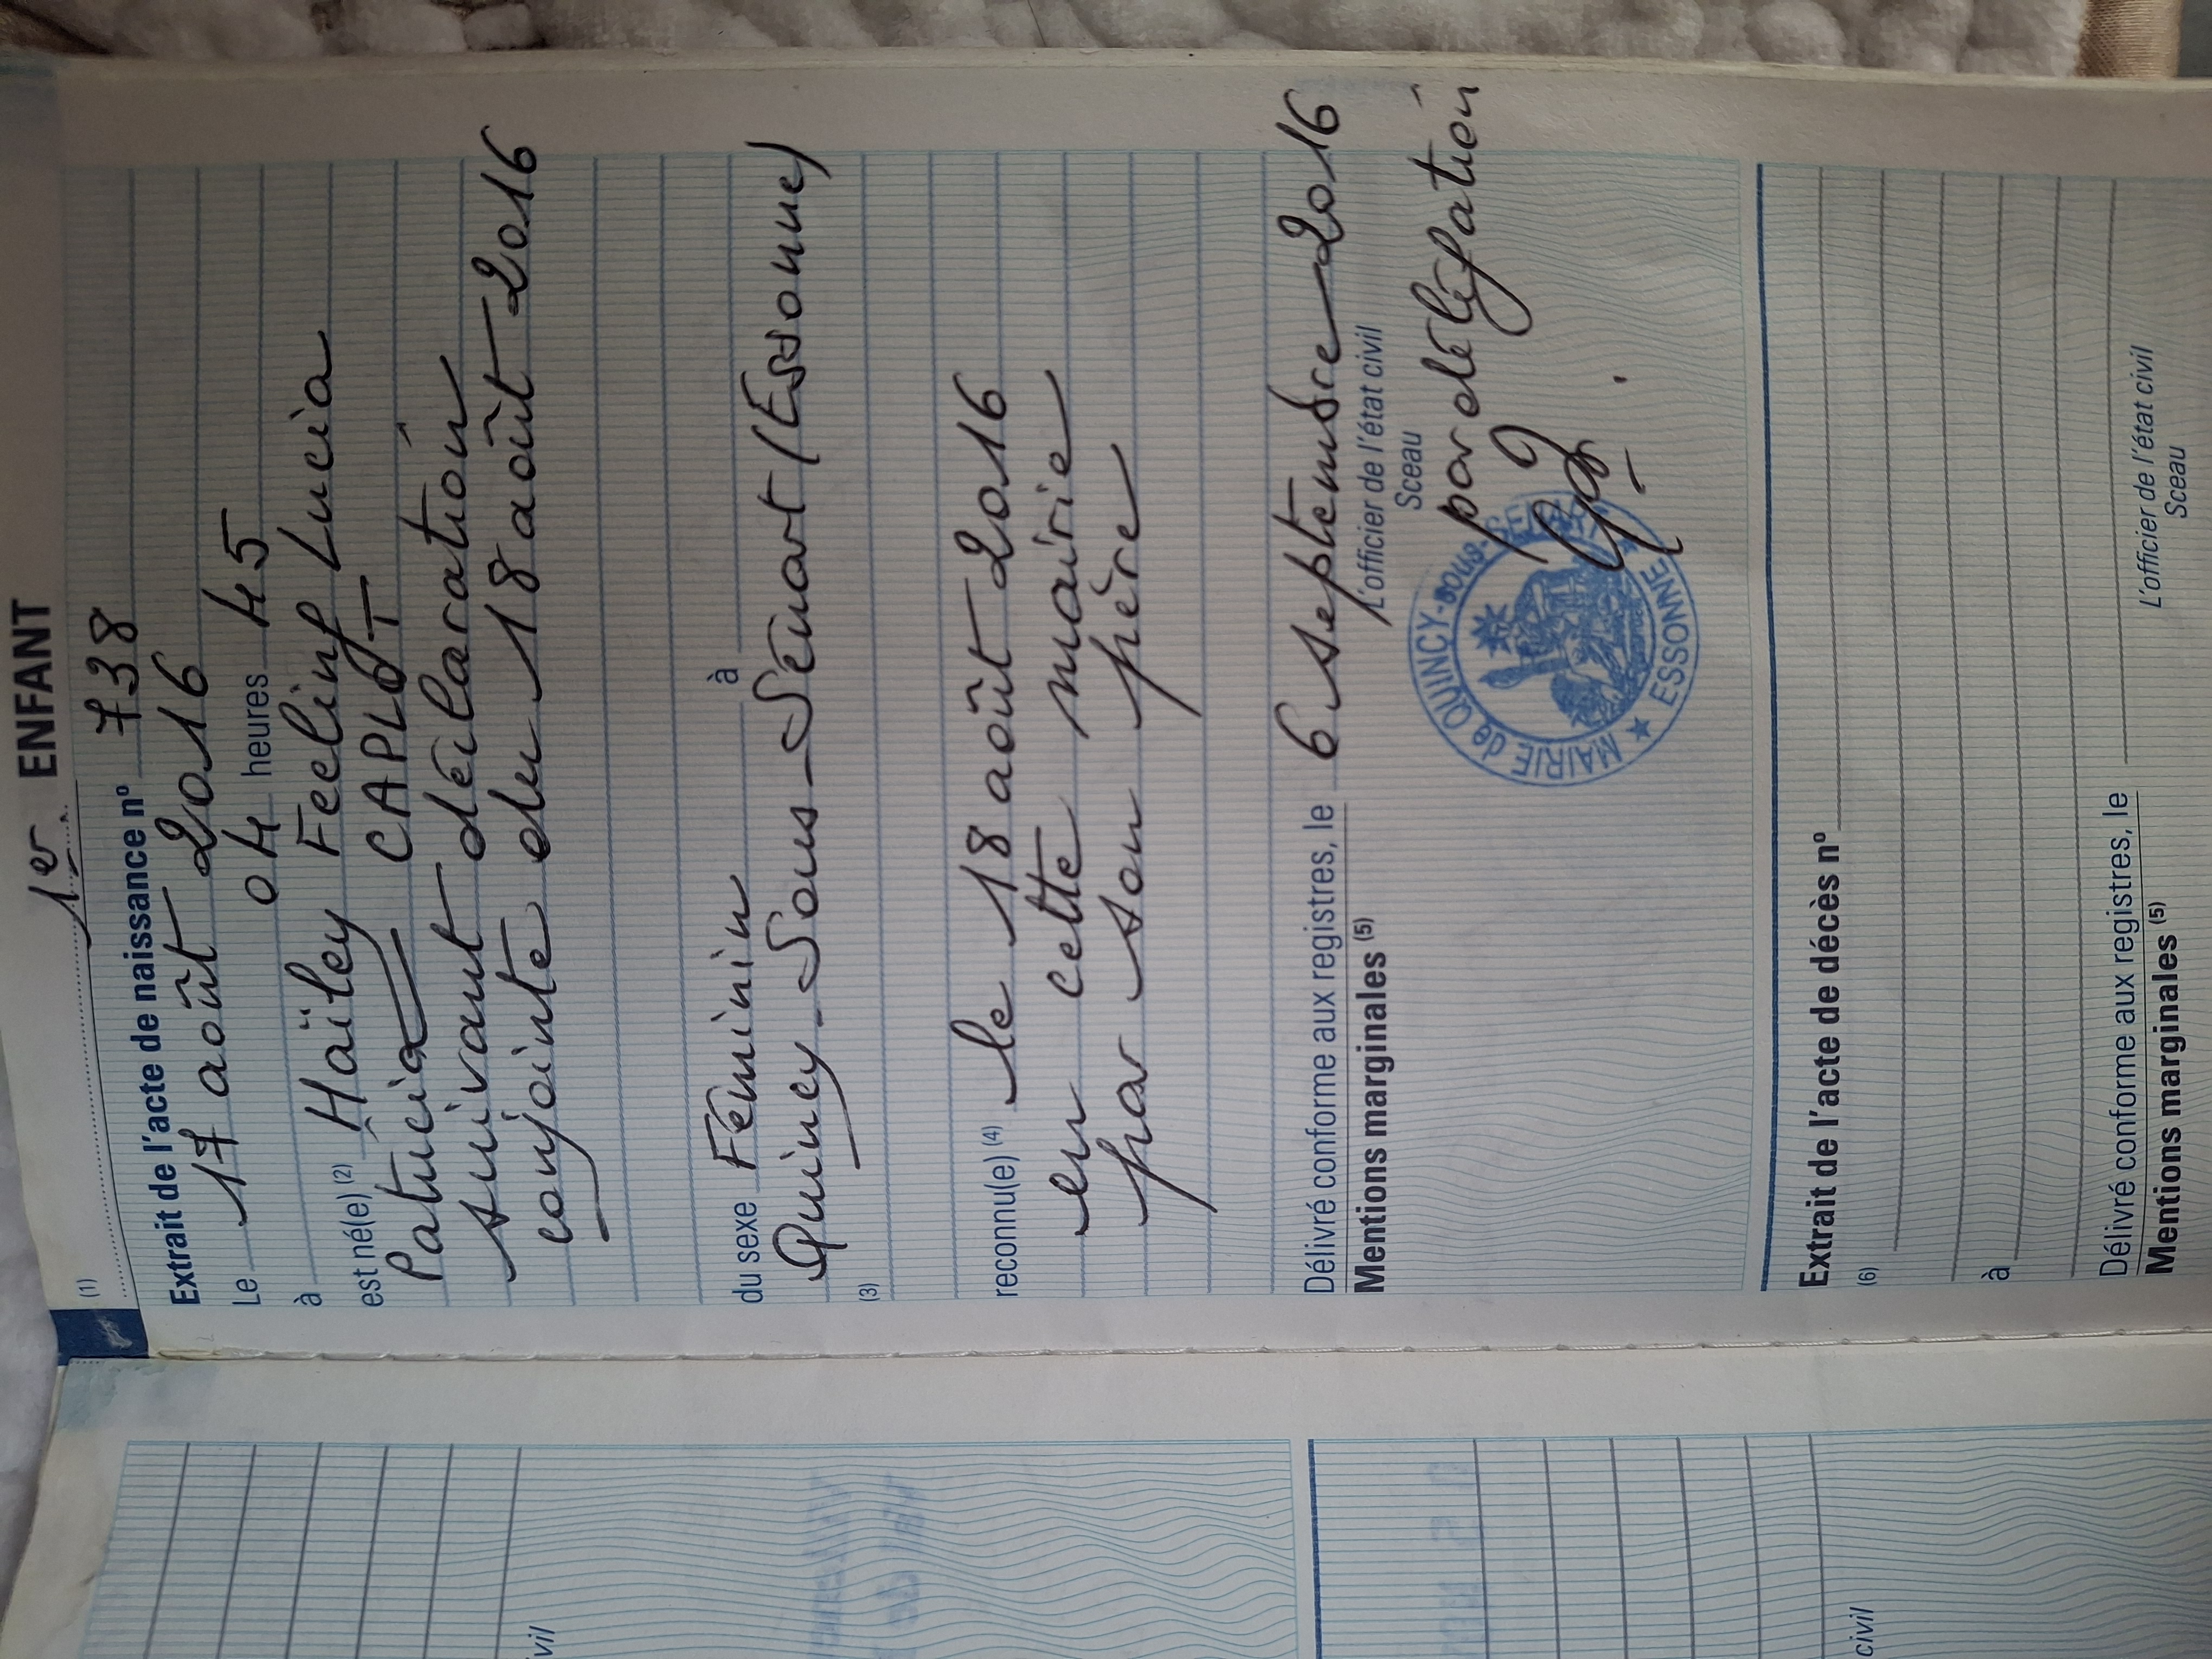 1er ENFANT
(1)
Extrait de l'acte de naissance nº 738
Le 17 août 2016
à 04 heures 45
est né(e) (2) Haïley Feeling Lucia
Patricia CAPLOT
suivant déclaration
conjointe du 18 août 2016
du sexe Féminin à
Quincy-Sous-Sénart (Essonne)
(3)
reconnu(e) (4) le 18 août 2016
en cette mairie
par son père
Délivré conforme aux registres, le 6 septembre 2016
Mentions marginales (5)
L'officier de l'état civil
Sceau
par délégation
MAIRIE de QUINCY-sous-SÉNART
★ ESSONNE ★
Extrait de l'acte de décès nº
(6)
à
Délivré conforme aux registres, le
Mentions marginales (5)
L'officier de l'état civil
Sceau
vil
civil